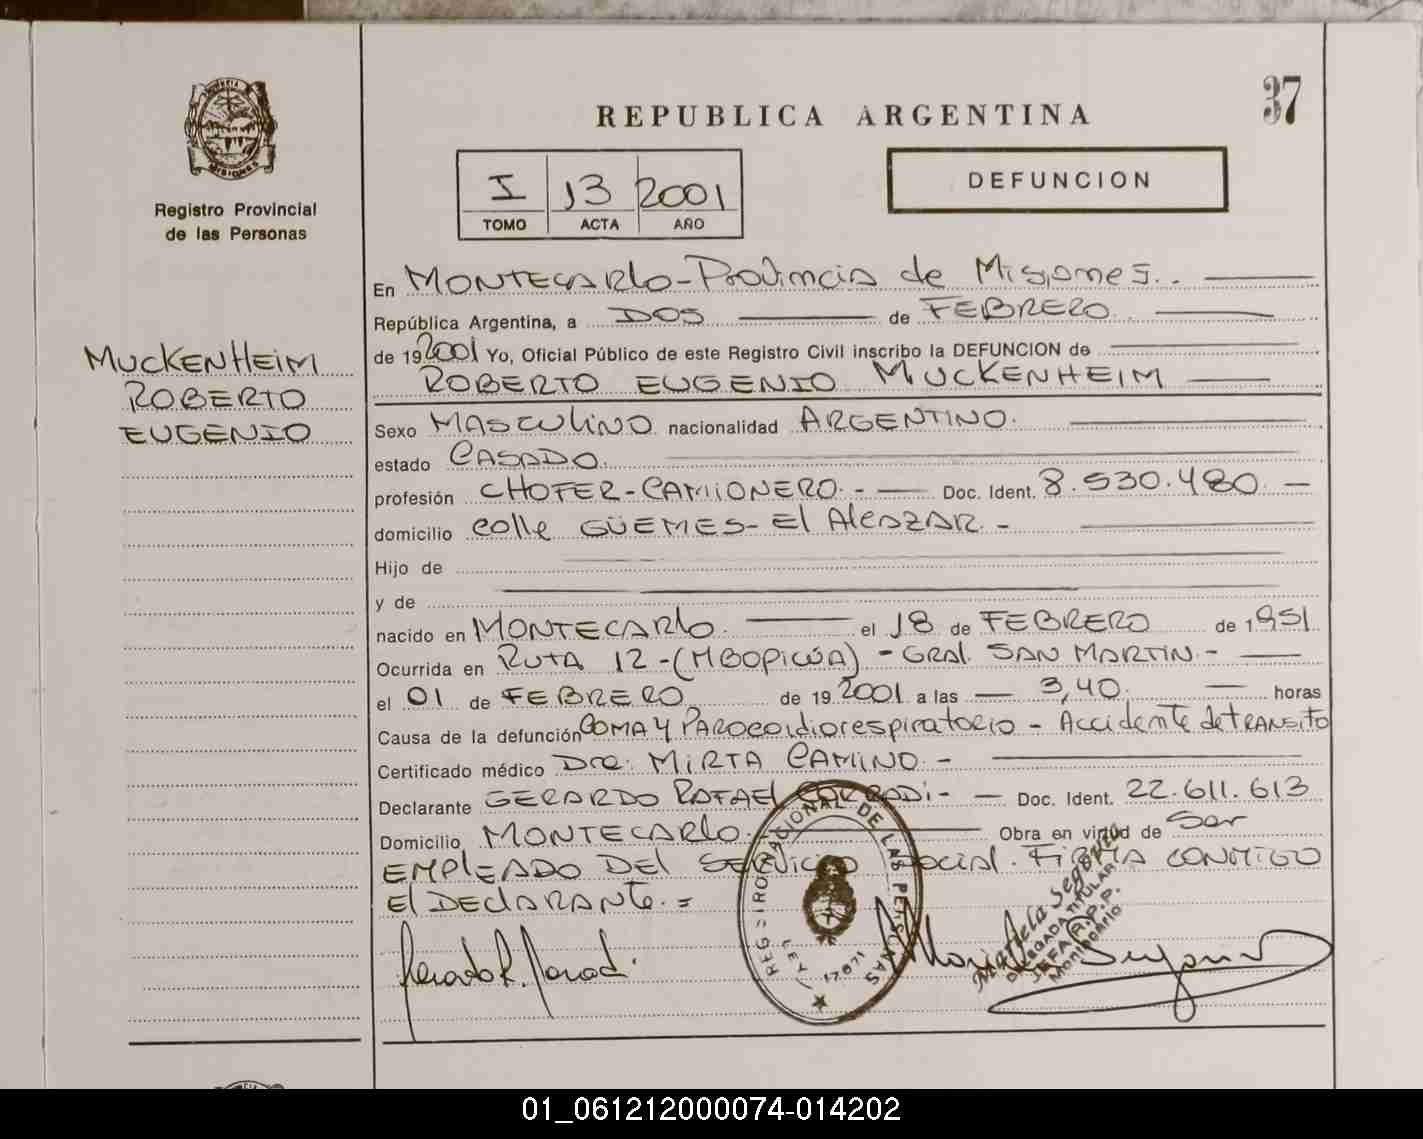 37
REPUBLICA ARGENTINA
PROVINCIA
MISIONES
Registro Provincial
de las Personas
DEFUNCION
I 13 2001
TOMO ACTA AÑO
MUCKENHEIM
ROBERTO
EUGENIO
En MONTECARlo-Provincia de Misiones..
República Argentina, a DOS de FEBRERO
de 19 2001 Yo, Oficial Público de este Registro Civil inscribo la DEFUNCION de
ROBERTO EUGENIO MUCKENHEIM
Sexo MASCULINO nacionalidad ARGENTINO.
estado CASADO.
profesión CHOFER-CAMIONERO.- Doc. Ident. 8.530.480.
domicilio calle GÜEMES- El AlCAZAR.-
Hijo de
y de
nacido en MONTECARlo. el 18 de FEBRERO de 1951
Ocurrida en RUTA 12-(MBOPICUÁ)-GRAl. SAN MARTIN.-
el 01 de FEBRERO de 19 2001 a las 3,40. horas
Causa de la defunción COMA Y PAROCardiorespiratorio - Accidente de TRANSITO
Certificado médico Dra. MIRTA CAMINO.-
Declarante GERARDO RAFAEl CORRADI- Doc. Ident. 22.611.613
Domicilio MONTECARLO. Obra en virtud de Ser
EMPlEADO DEl SERVICIO SOCIAl. FIRMA CONMIGO
El DEClARANTE.=
REGISTRO NACIONAL DE LAS PERSONAS
LEY 17.671
Mariela Segovia
DELEGADA TITULAR
JEFA R.P.P.
Montecarlo
01_061212000074-014202